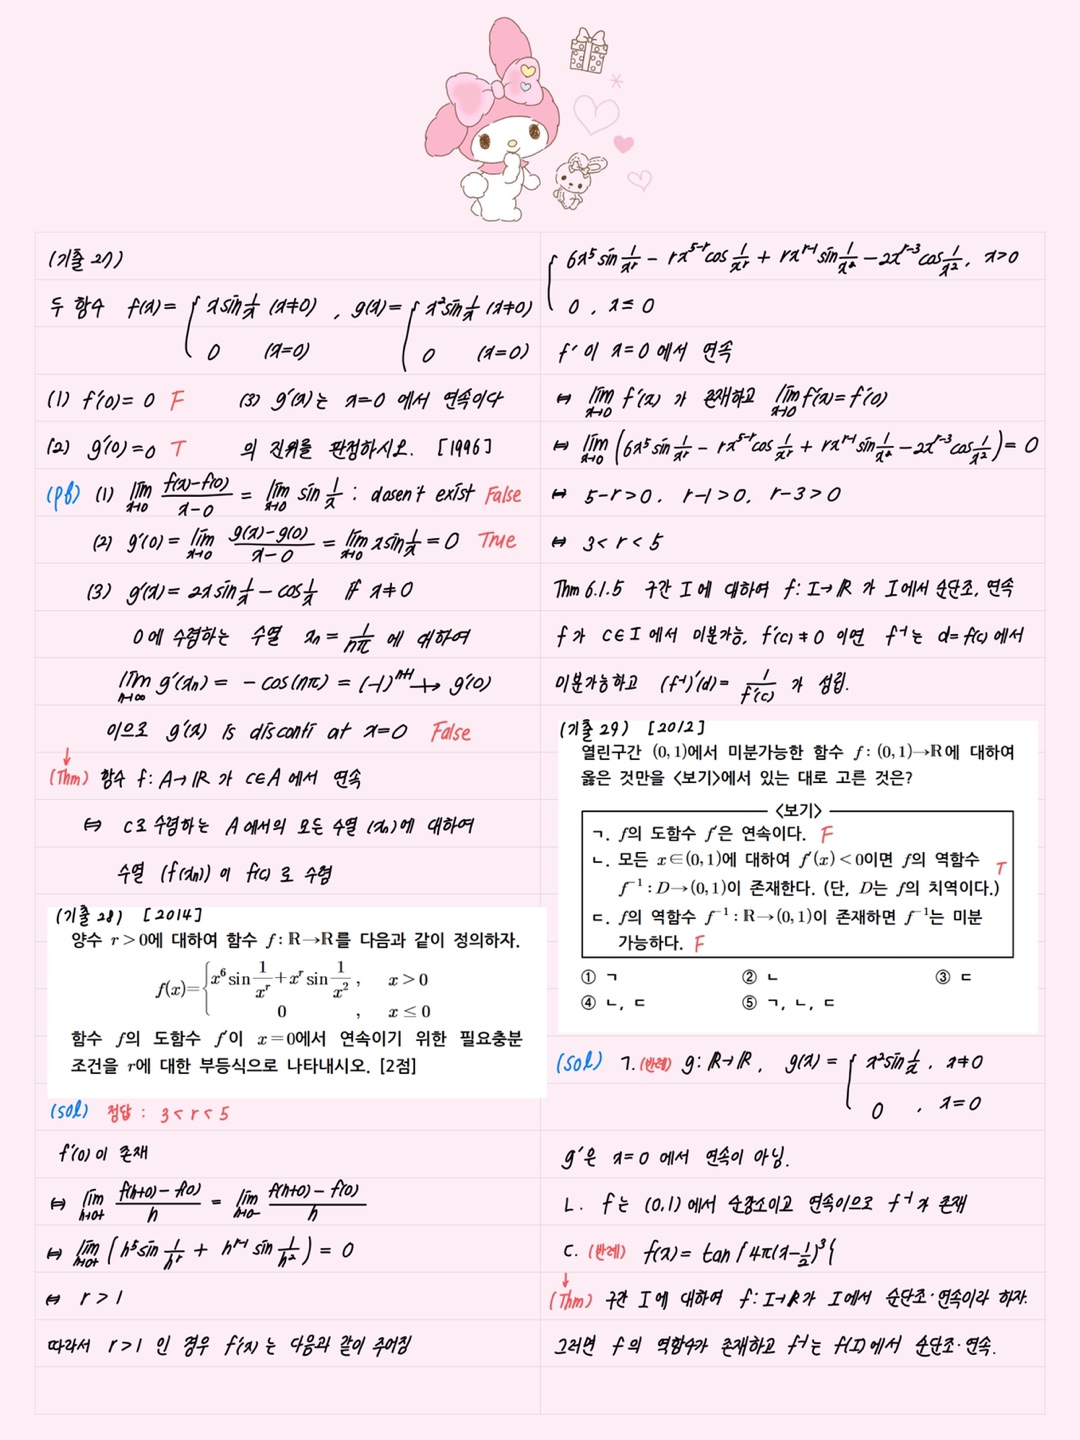 (기출 27)
두 함수 f(x)= { x sin 1/x (x≠0) , g(x)= { x² sin 1/x (x≠0)
0 (x=0) 0 (x=0)
(1) f'(0)= 0 F (3) g'(x)는 x=0 에서 연속이다
(2) g'(0)=0 T 의 진위를 판정하시오. [1996]
(pf) (1) lim x→0 f(x)-f(0)/x-0 = lim x→0 sin 1/x : dosen't exist False
(2) g'(0)= lim x→0 g(x)-g(0)/x-0 = lim x→0 x sin 1/x = 0 True
(3) g'(x)= 2x sin 1/x - cos 1/x if x≠0
0에 수렴하는 수열 xn = 1/nπ 에 대하여
lim n→∞ g'(xn) = -cos(nπ) = (-1)^n+1 ↛ g'(0)
이므로 g'(x) is disconti at x=0 False
↓
(Thm) 함수 f: A→ℝ 가 c∈A 에서 연속
⇔ c로 수렴하는 A에서의 모든 수열 (xn)에 대하여
수열 (f(xn)) 이 f(c) 로 수렴
(기출 28) [2014]
양수 r>0에 대하여 함수 f: ℝ→ℝ를 다음과 같이 정의하자.
f(x)= { x⁶ sin 1/x^r + x^r sin 1/x² , x>0
0 , x≤0
함수 f의 도함수 f'이 x=0에서 연속이기 위한 필요충분
조건을 r에 대한 부등식으로 나타내시오. [2점]
(sol) 정답 : 3<r<5
f'(0)이 존재
⇔ lim h→0+ f(h+0)-f(0)/h = lim h→0- f(h+0)-f(0)/h
⇔ lim h→0+ (h⁵ sin 1/h^r + h^r-1 sin 1/h²) = 0
⇔ r>1
따라서 r>1 인 경우 f'(x)는 다음과 같이 주어짐
{ 6x⁵ sin 1/x^r - rx^5-r cos 1/x^r + rx^r-1 sin 1/x² - 2x^r-3 cos 1/x², x>0
0 , x≤0
f' 이 x=0 에서 연속
⇔ lim x→0 f'(x) 가 존재하고 lim x→0 f'(x)=f'(0)
⇔ lim x→0 (6x⁵ sin 1/x^r - rx^5-r cos 1/x^r + rx^r-1 sin 1/x² - 2x^r-3 cos 1/x²) = 0
⇔ 5-r>0, r-1>0, r-3>0
⇔ 3<r<5
Thm 6.1.5 구간 I에 대하여 f: I→ℝ 가 I에서 순단조, 연속
f가 c∈I 에서 미분가능, f'(c)≠0 이면 f⁻¹는 d=f(c) 에서
미분가능하고 (f⁻¹)'(d)= 1/f'(c) 가 성립.
(기출 29) [2012]
열린구간 (0,1)에서 미분가능한 함수 f: (0,1)→ℝ에 대하여
옳은 것만을 <보기>에서 있는 대로 고른 것은?
<보기>
ㄱ. f의 도함수 f'은 연속이다. F
ㄴ. 모든 x∈(0,1)에 대하여 f'(x)<0이면 f의 역함수 T
f⁻¹: D→(0,1)이 존재한다. (단, D는 f의 치역이다.)
ㄷ. f의 역함수 f⁻¹: ℝ→(0,1)이 존재하면 f⁻¹는 미분
가능하다. F
① ㄱ ② ㄴ ③ ㄷ
④ ㄴ, ㄷ ⑤ ㄱ, ㄴ, ㄷ
(sol) ㄱ. (반례) g: ℝ→ℝ, g(x) = { x² sin 1/x , x≠0
0 , x=0
g'은 x=0 에서 연속이 아님.
ㄴ. f는 (0,1)에서 순감소이고 연속이므로 f⁻¹가 존재
ㄷ. (반례) f(x)= tan{4π(x-1/2)³}
↓
(Thm) 구간 I에 대하여 f: I→ℝ가 I에서 순단조·연속이라 하자.
그러면 f의 역함수가 존재하고 f⁻¹는 f(I)에서 순단조·연속.